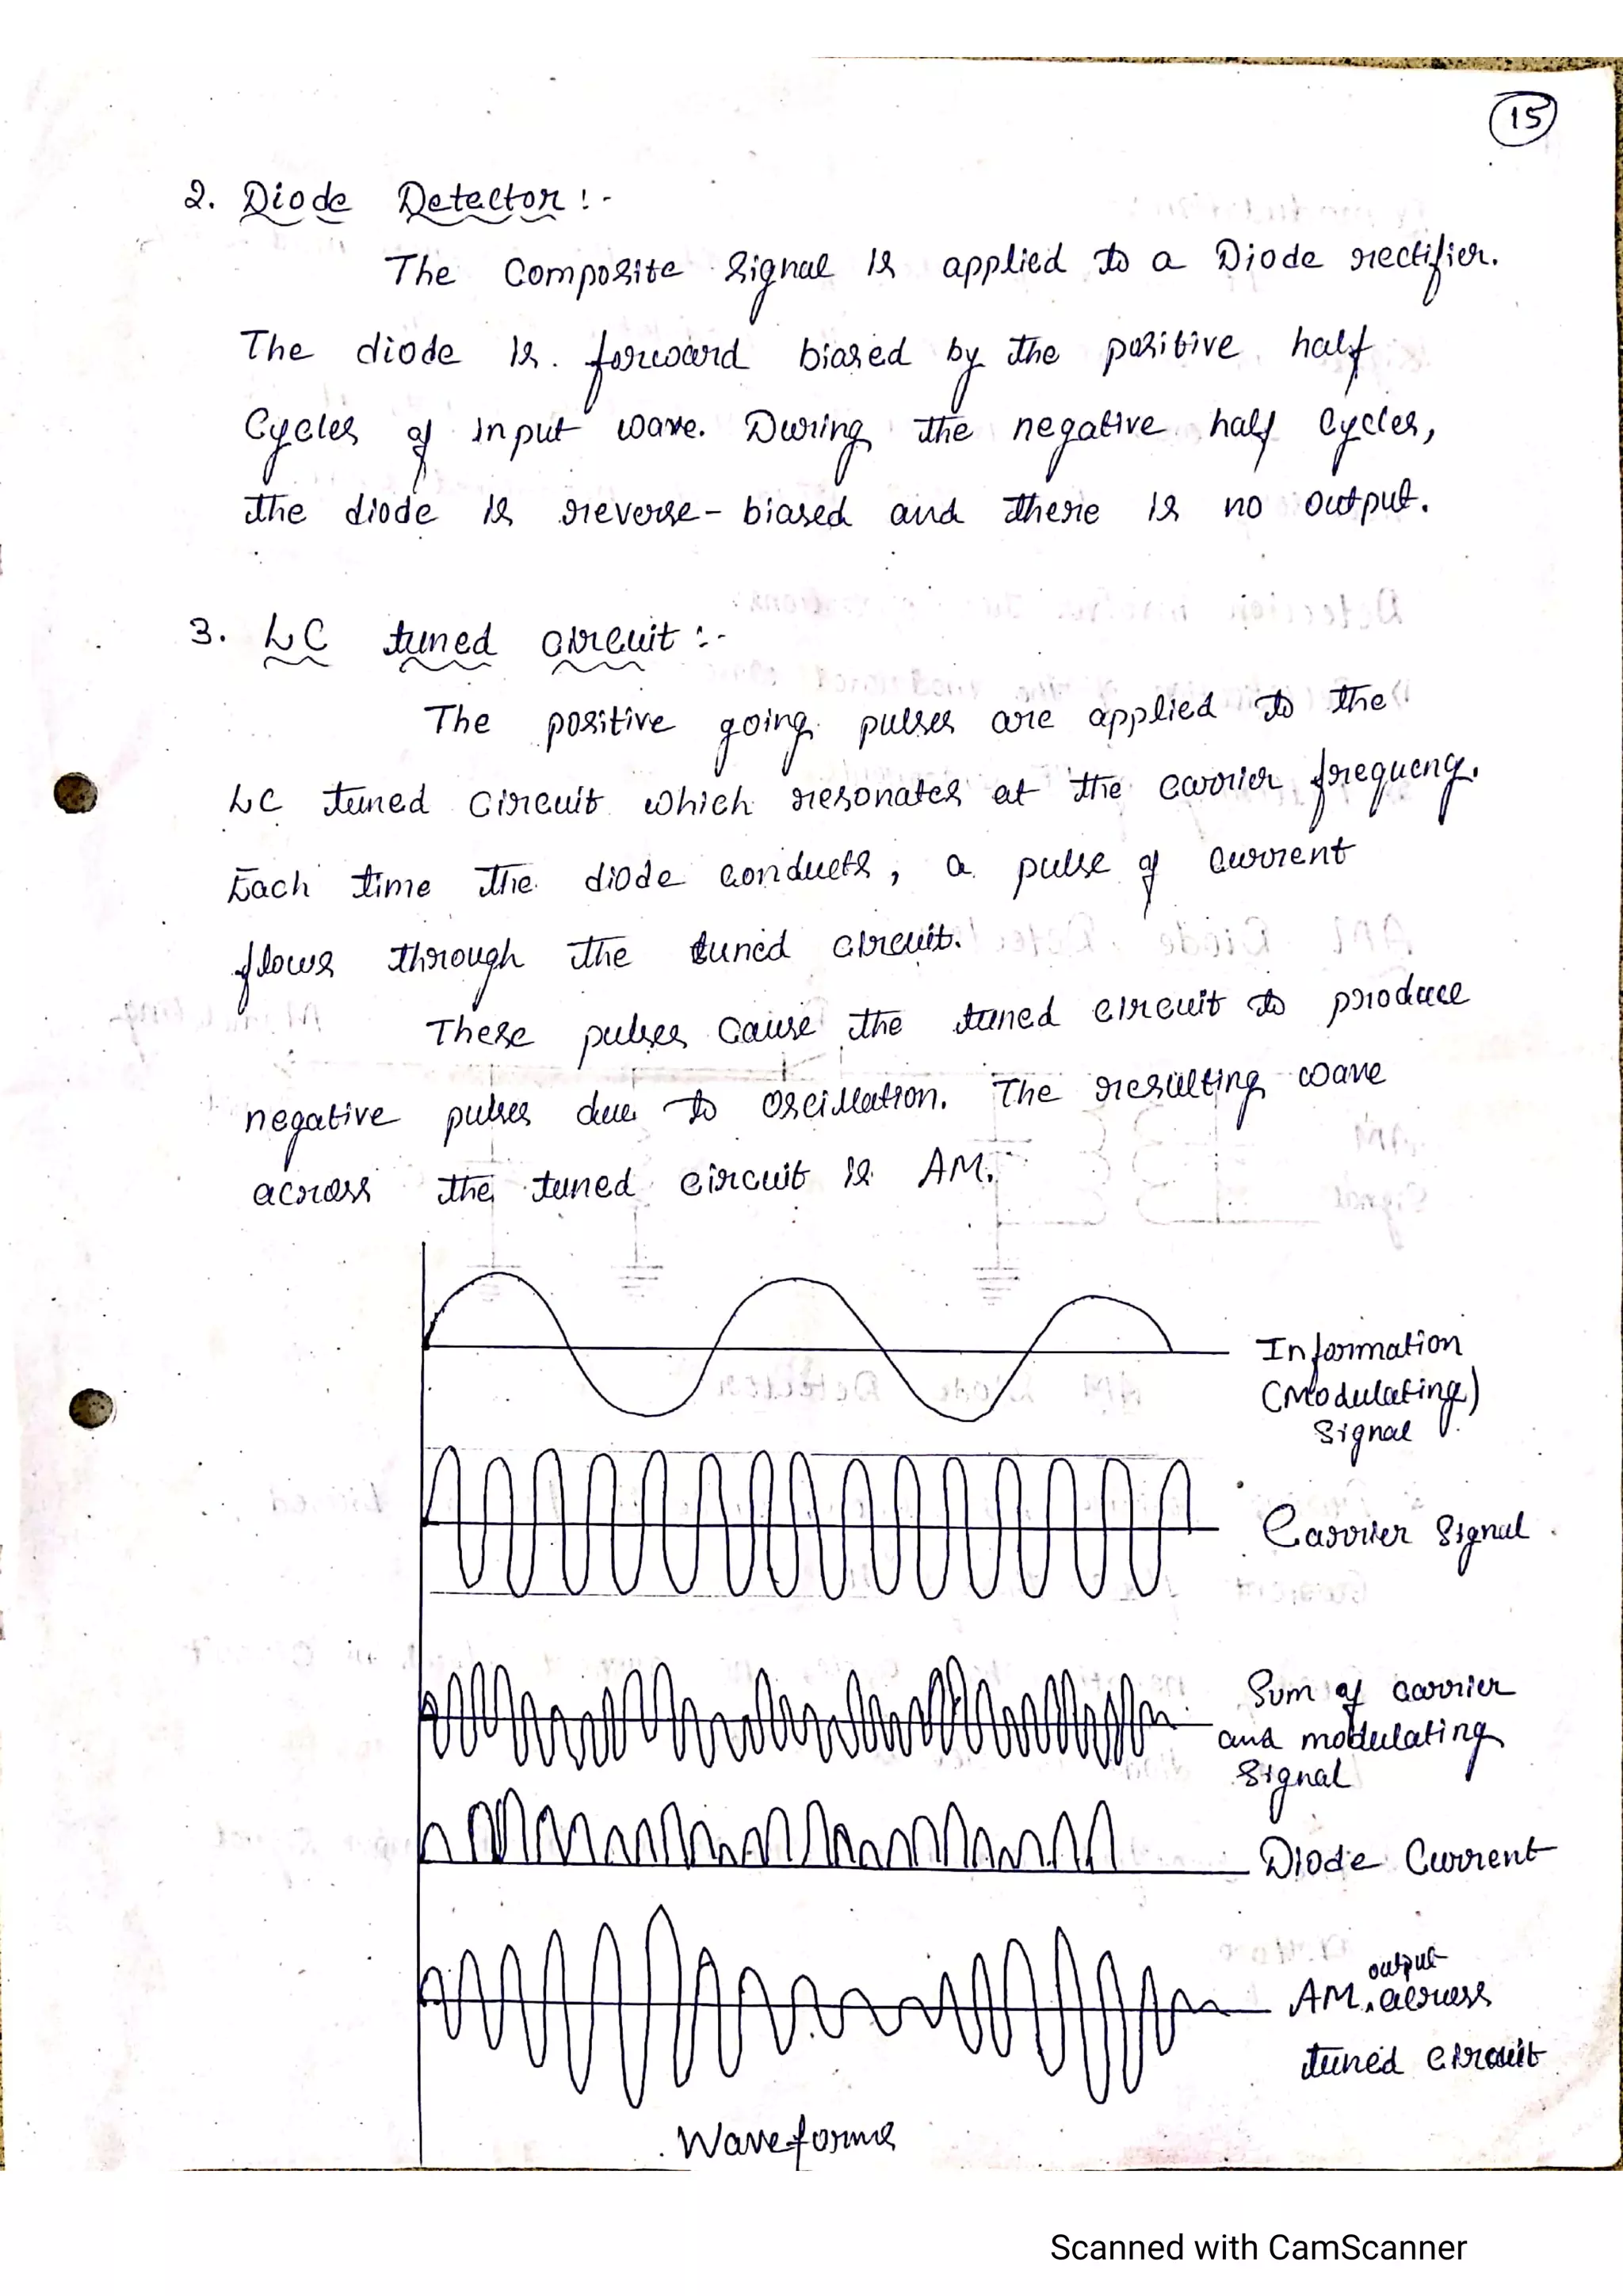 15
2. Diode Detector :-
The Composite Signal is applied to a Diode rectifier.
The diode is forward biased by the positive half
Cycles of input wave. During the negative half Cycles,
the diode is reverse-biased and there is no output.
3. LC tuned circuit :-
The positive going pulses are applied to the
LC tuned Circuit which resonates at the carrier frequency.
Each time the diode conducts, a pulse of current
flows through the tuned circuit.
These pulses cause the tuned circuit to produce
negative pulses due to oscillation. The resulting wave
across the tuned circuit is AM.
Information
(Modulating)
Signal
Carrier Signal
Sum of carrier
and modulating
Signal
Diode Current
output
AM across
tuned circuit
Waveforms
Scanned with CamScanner